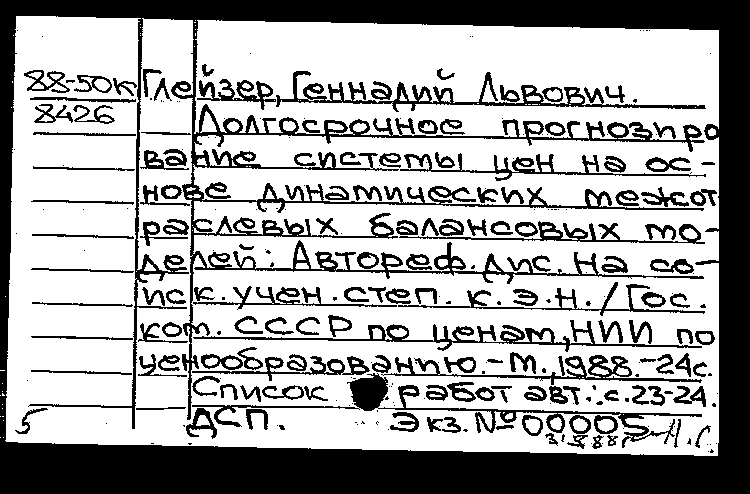 88-50к Глейзер, Геннадий Львович.
8426 Долгосрочное прогнозиро
вание системы цен на ос-
нове динамических межот
раслевых балансовых мо-
делей: Автореф. дис. на со-
иск. учен. степ. к. э. н. / Гос.
ком. СССР по ценам, НИИ по
ценообразованию. - М., 1988. - 24с.
Список работ авт.: с. 23-24.
ДСП. Экз. № 00005
5 Н. С.